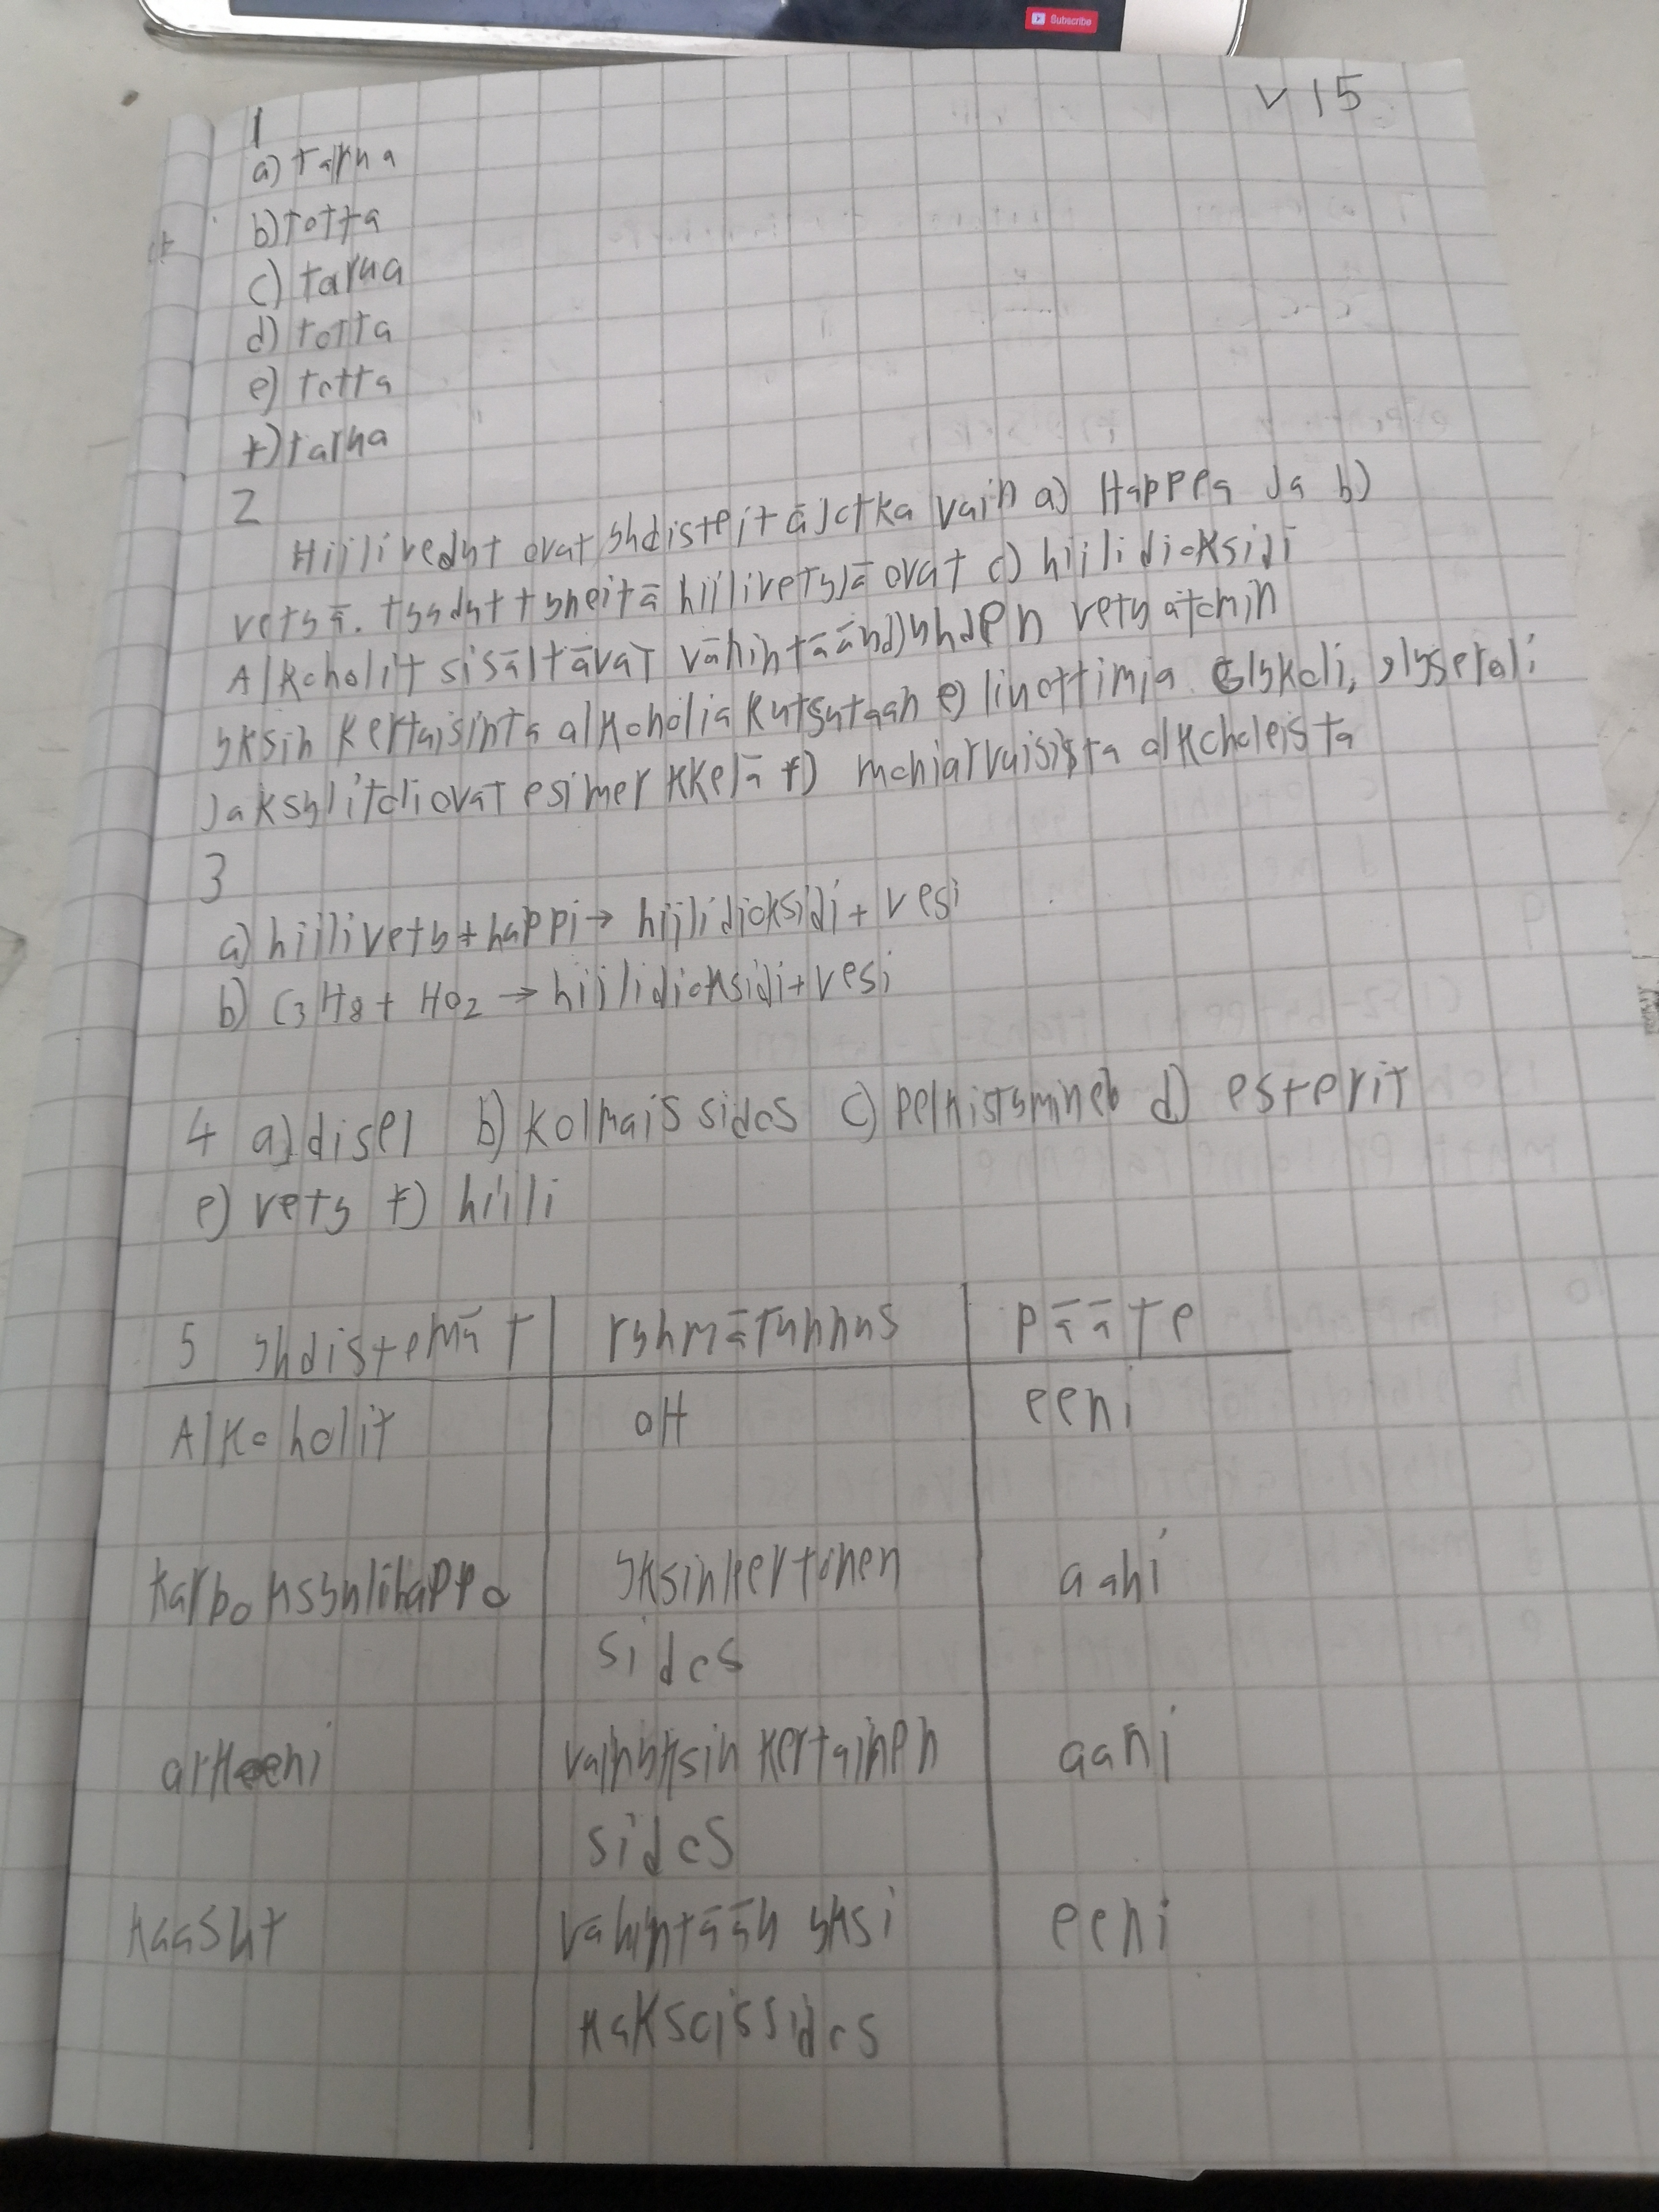 Subscribe
V 15
1
a) tarua
b) totta
c) tarua
d) totta
e) totta
f) tarua
2
Hiilivedyt ovat yhdisteitä jotka vain a) Happea Ja b)
vetyä. tyydyttyneitä hiilivetyjä ovat c) hiilidioksidi
Alkoholit sisältävät vähintään d) yhden vety atomin
yksin kertaisinta alkoholia kutsutaan e) liuottimia Glykoli, glyseroli
Ja ksylitoli ovat esimerkkejä f) moniarvoisista alkoholeista
3
a) hiilivety + happi → hiilidioksidi + vesi
b) C3H8 + HO2 → hiilidioksidi + vesi
4 a) disel b) kolmoissidos c) pelkistyminen d) esterit
e) vety f) hiili
5 yhdistemät ryhmätunnus pääte
Alkoholit OH eeni
karboksyylihappo yksinkertonen aani
sidos
arkeeni vain yksin kertainen aani
sidos
kaasut vähintään yksi eeni
kaksoissidos